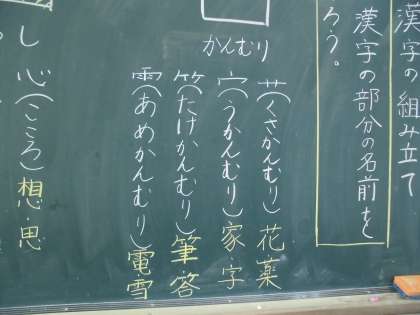 漢字の組み立て
漢字の部分の名前を
ろう。
かんむり
艹(くさかんむり)花 薬
宀(うかんむり)家・字
⺮(たけかんむり)筆 答
雨(あめかんむり)電・雪
し
心(こころ)想・思